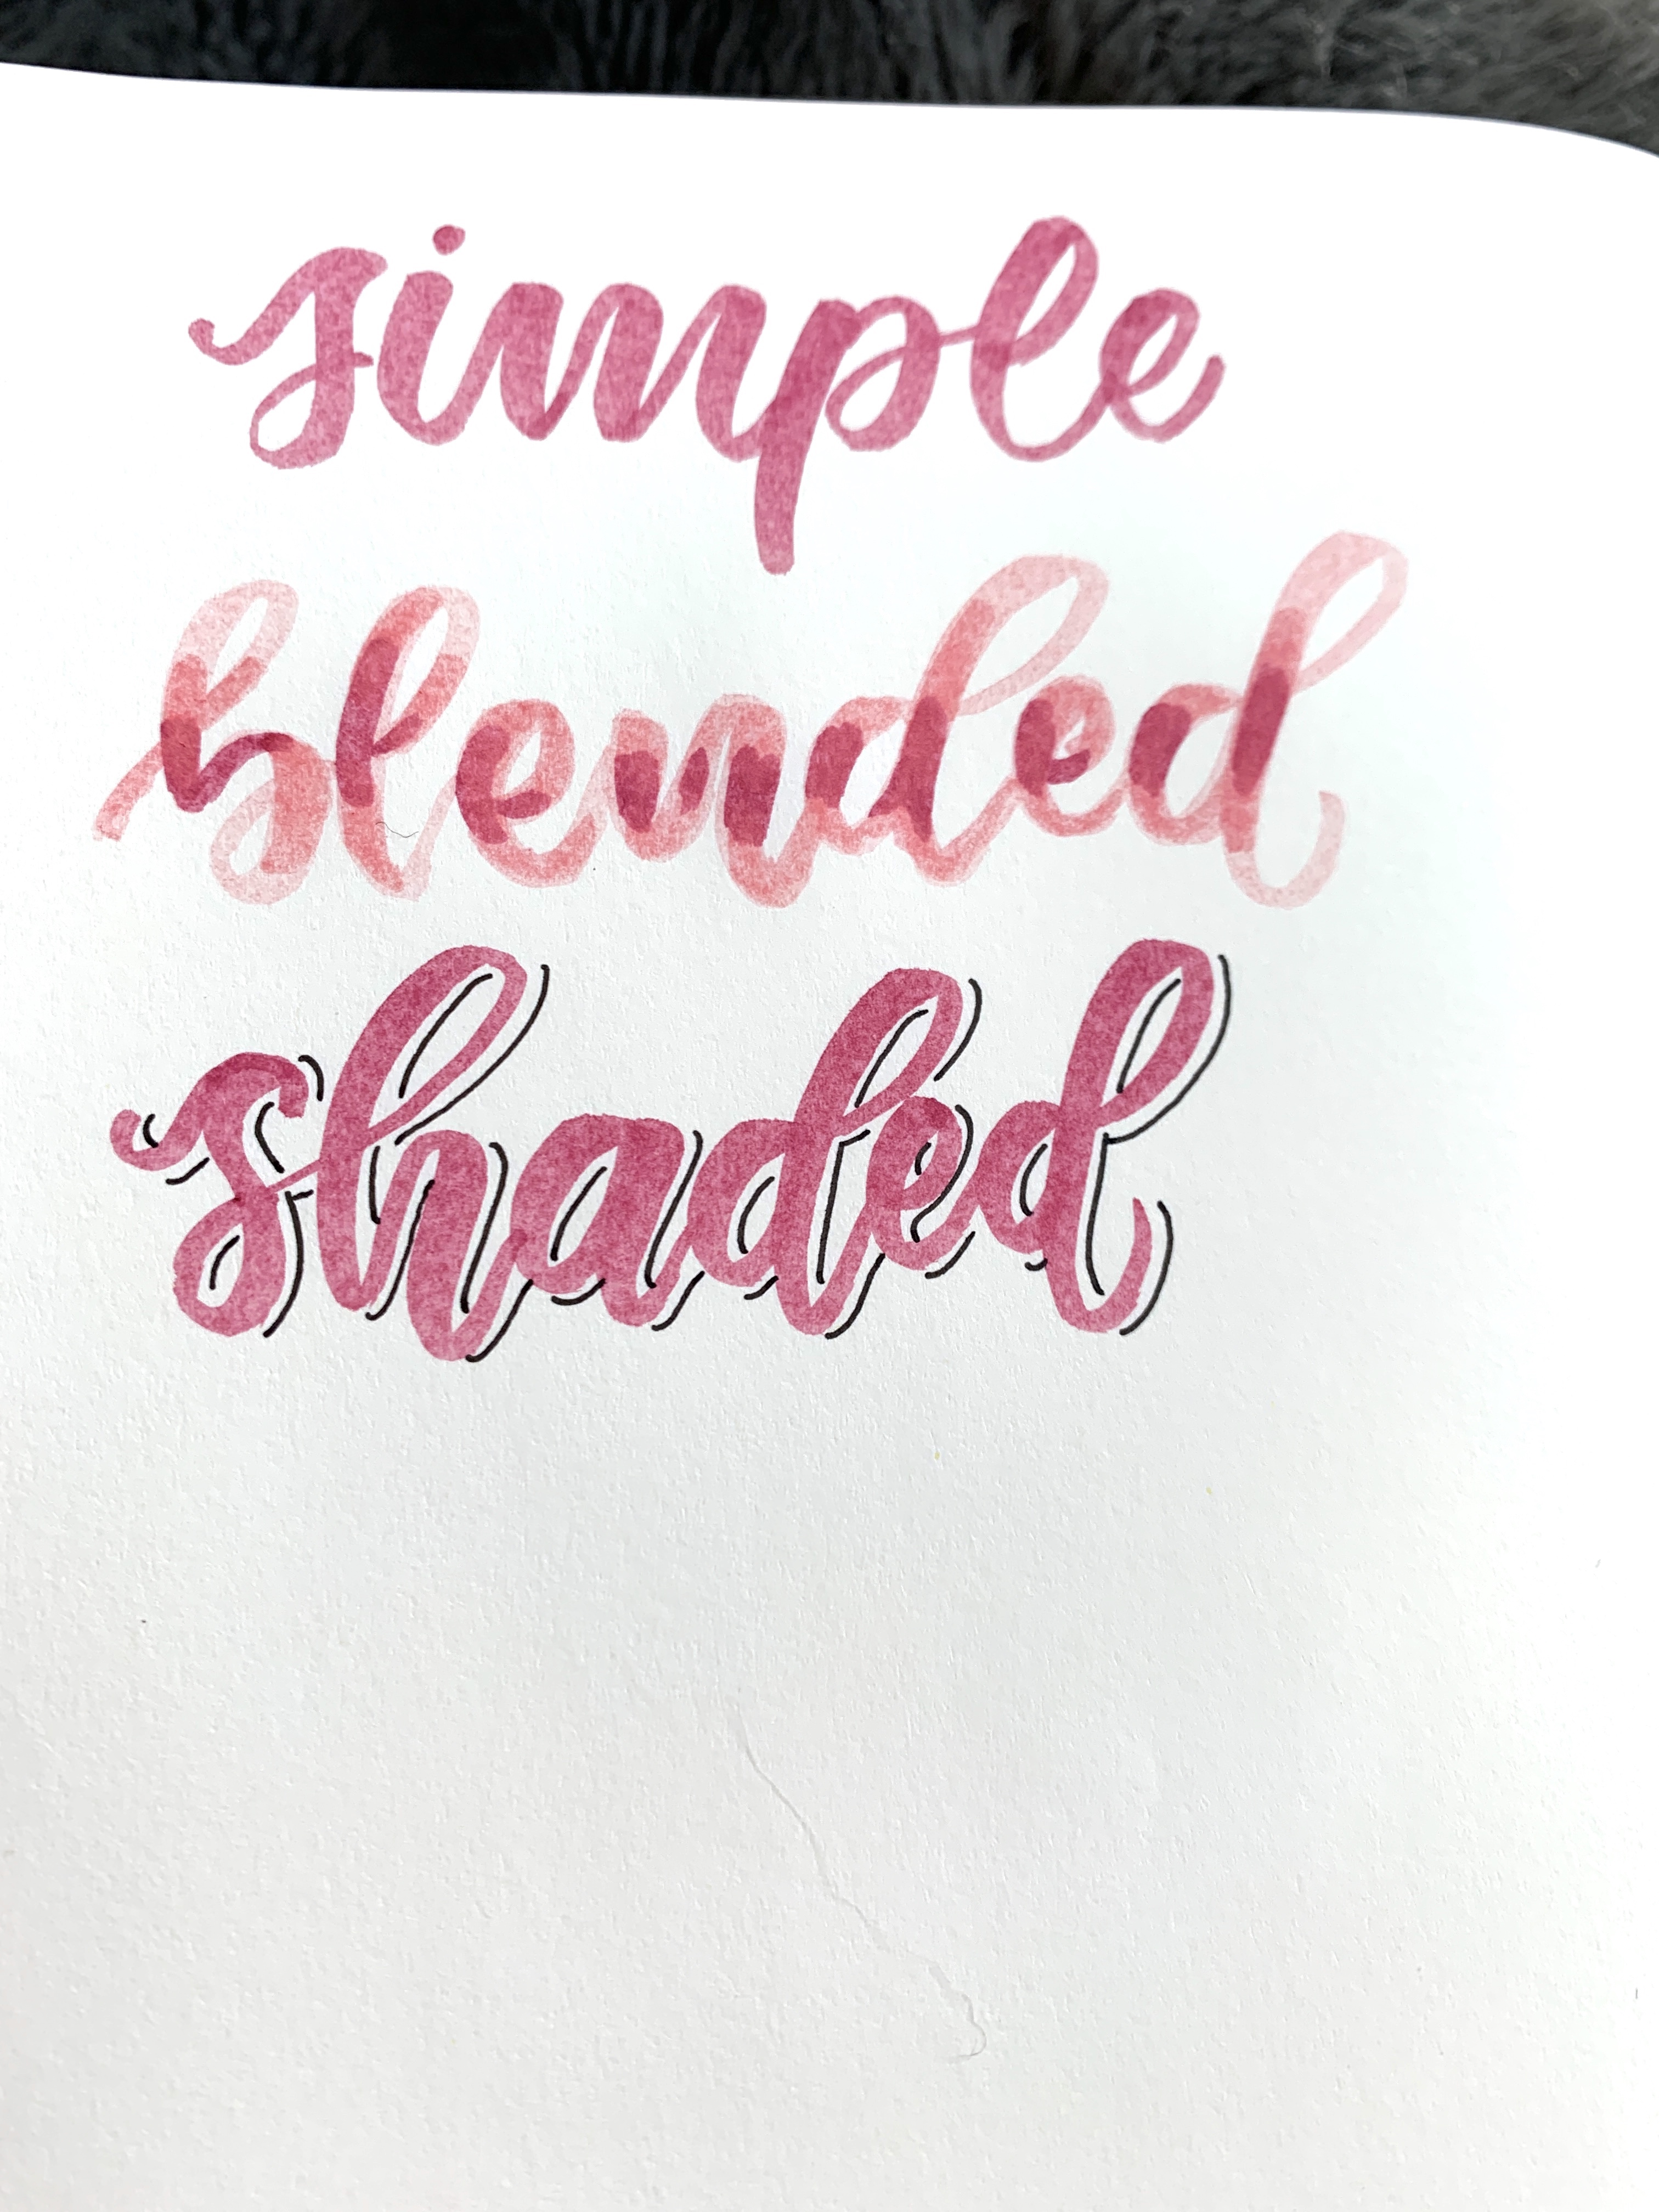 simple
blended
shaded